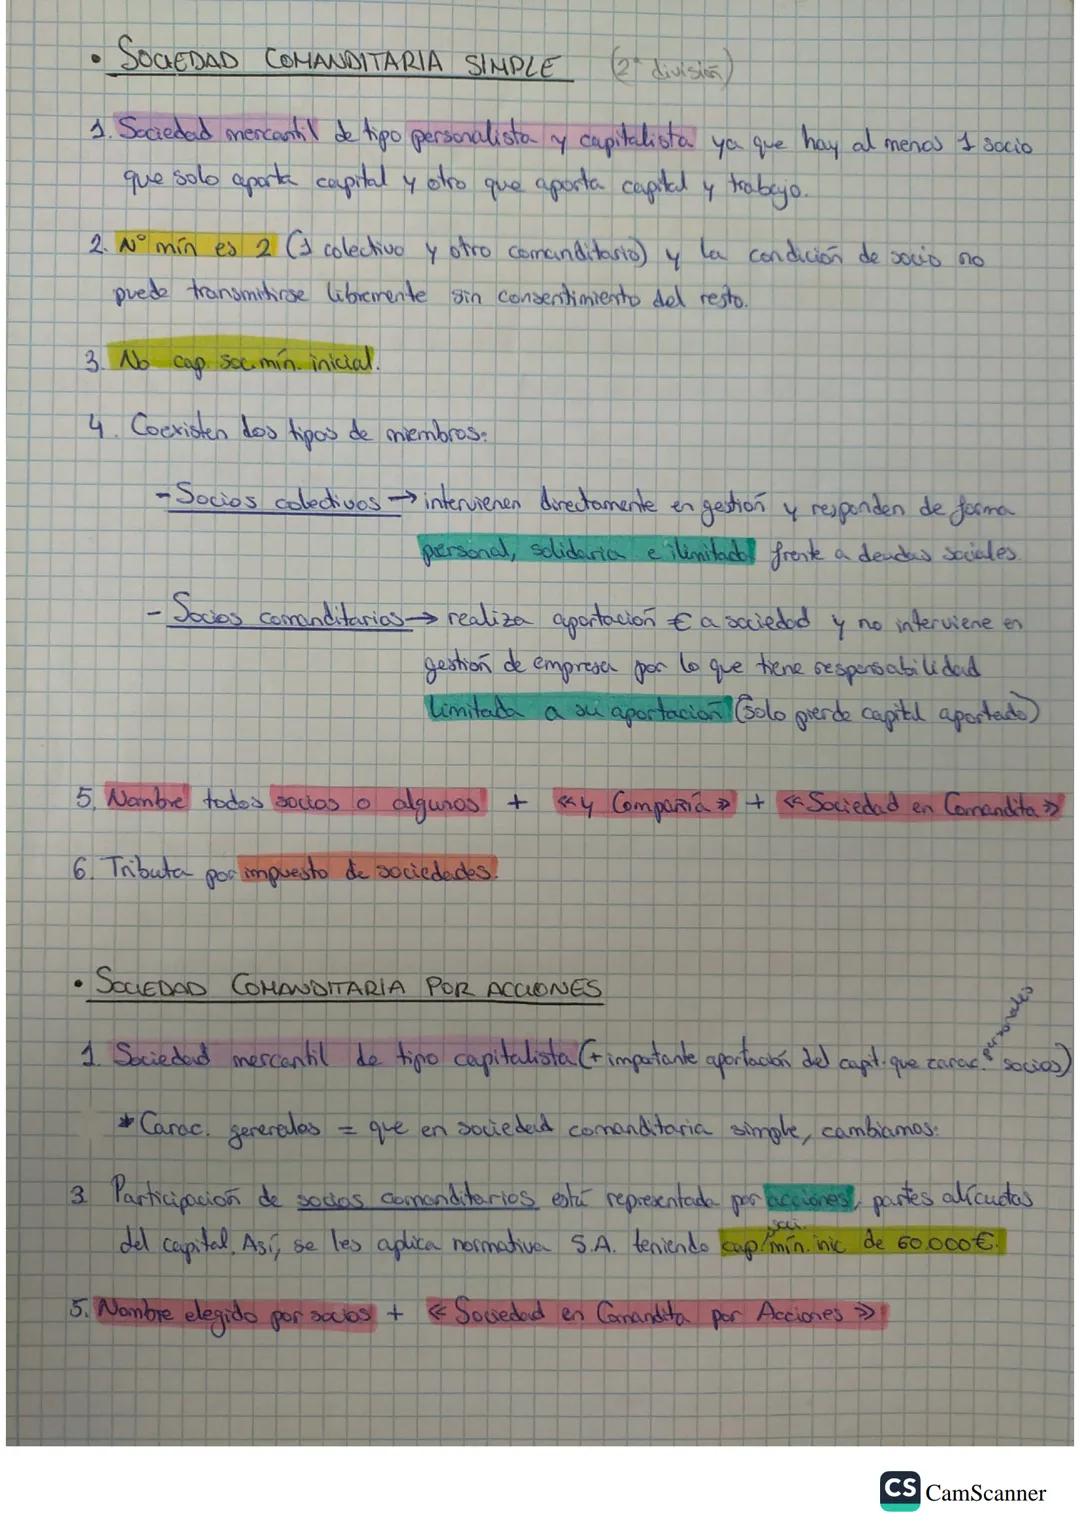 • SOCIEDAD COMANDITARIA SIMPLE (2ª división)
1. Sociedad mercantil de tipo personalista y capitalista ya que hay al menos 1 socio
que solo aporta capital y otro que aporta capital y trabajo.
2. Nº mín es 2 (1 colectivo y otro comanditario) y la condición de socio no
puede transmitirse libremente sin consentimiento del resto.
3. No cap. soc. mín. inicial.
4. Coexisten dos tipos de miembros:
- Socios colectivos → intervienen directamente en gestión y responden de forma
personal, solidaria e ilimitada frente a deudas sociales.
- Socios comanditarios → realiza aportación € a sociedad y no interviene en
gestión de empresa por lo que tiene responsabilidad
limitada a su aportación (solo pierde capital aportado)
5. Nombre todos socios o algunos + «y Compañía» + «Sociedad en Comandita»
6. Tributa por impuesto de sociedades.
• SOCIEDAD COMANDITARIA POR ACCIONES
1. Sociedad mercantil de tipo capitalista (+ importante aportación del capit. que carac. personales socios)
* Carac. generales = que en sociedad comanditaria simple, cambiamos:
3 Participación de socios comanditarios está representada por acciones, partes alícuotas
del capital. Así, se les aplica normativa S.A. teniendo cap. soci. mín. inic de 60.000€.
5. Nombre elegido por socios + «Sociedad en Comandita por Acciones»
CS CamScanner